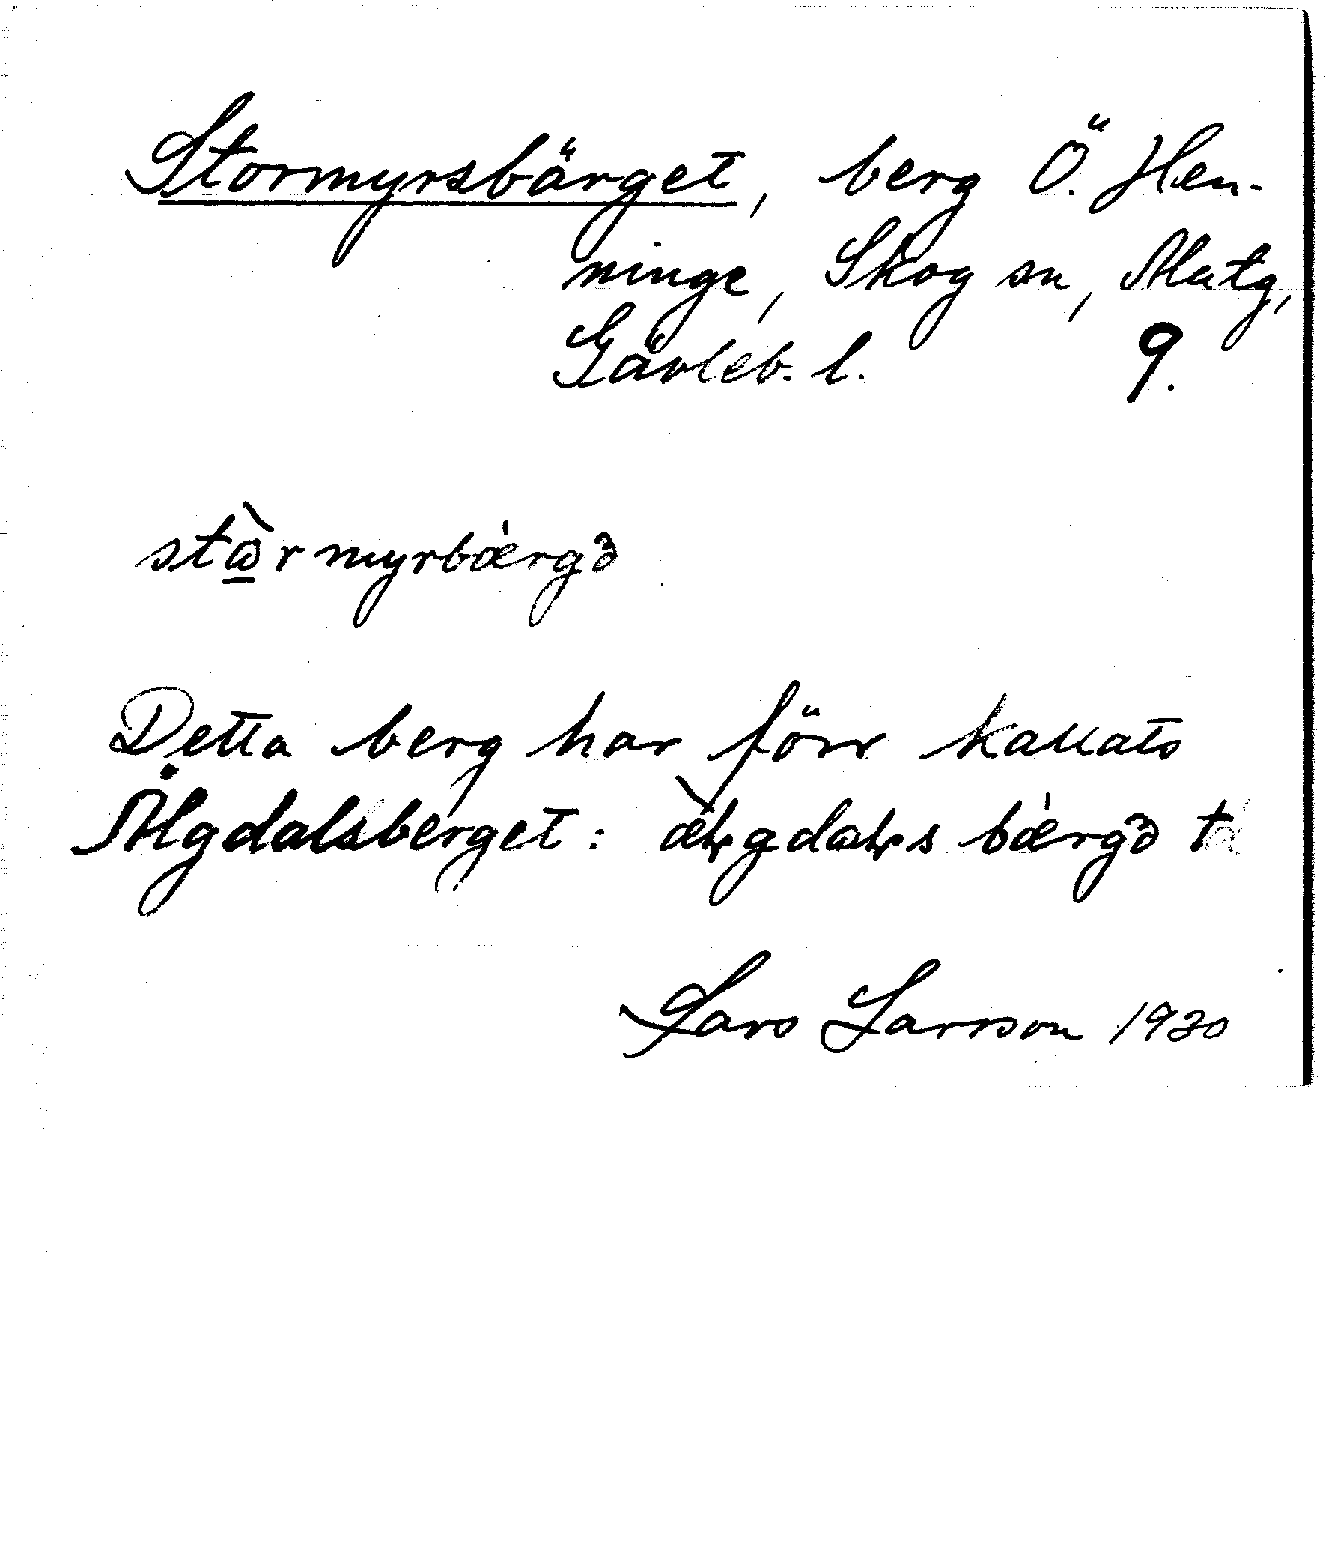 Stormyrsbärget, berg Ö. Hen-
ninge, Skog sn, Alutg,
Gävleb. l. 9.
stɷ̲̀rmyrbǽrgə
Detta berg har förr kallats
Älgdalsberget: æ̀ɫgdaɫsbǽrgə
Lars Larsson 1930